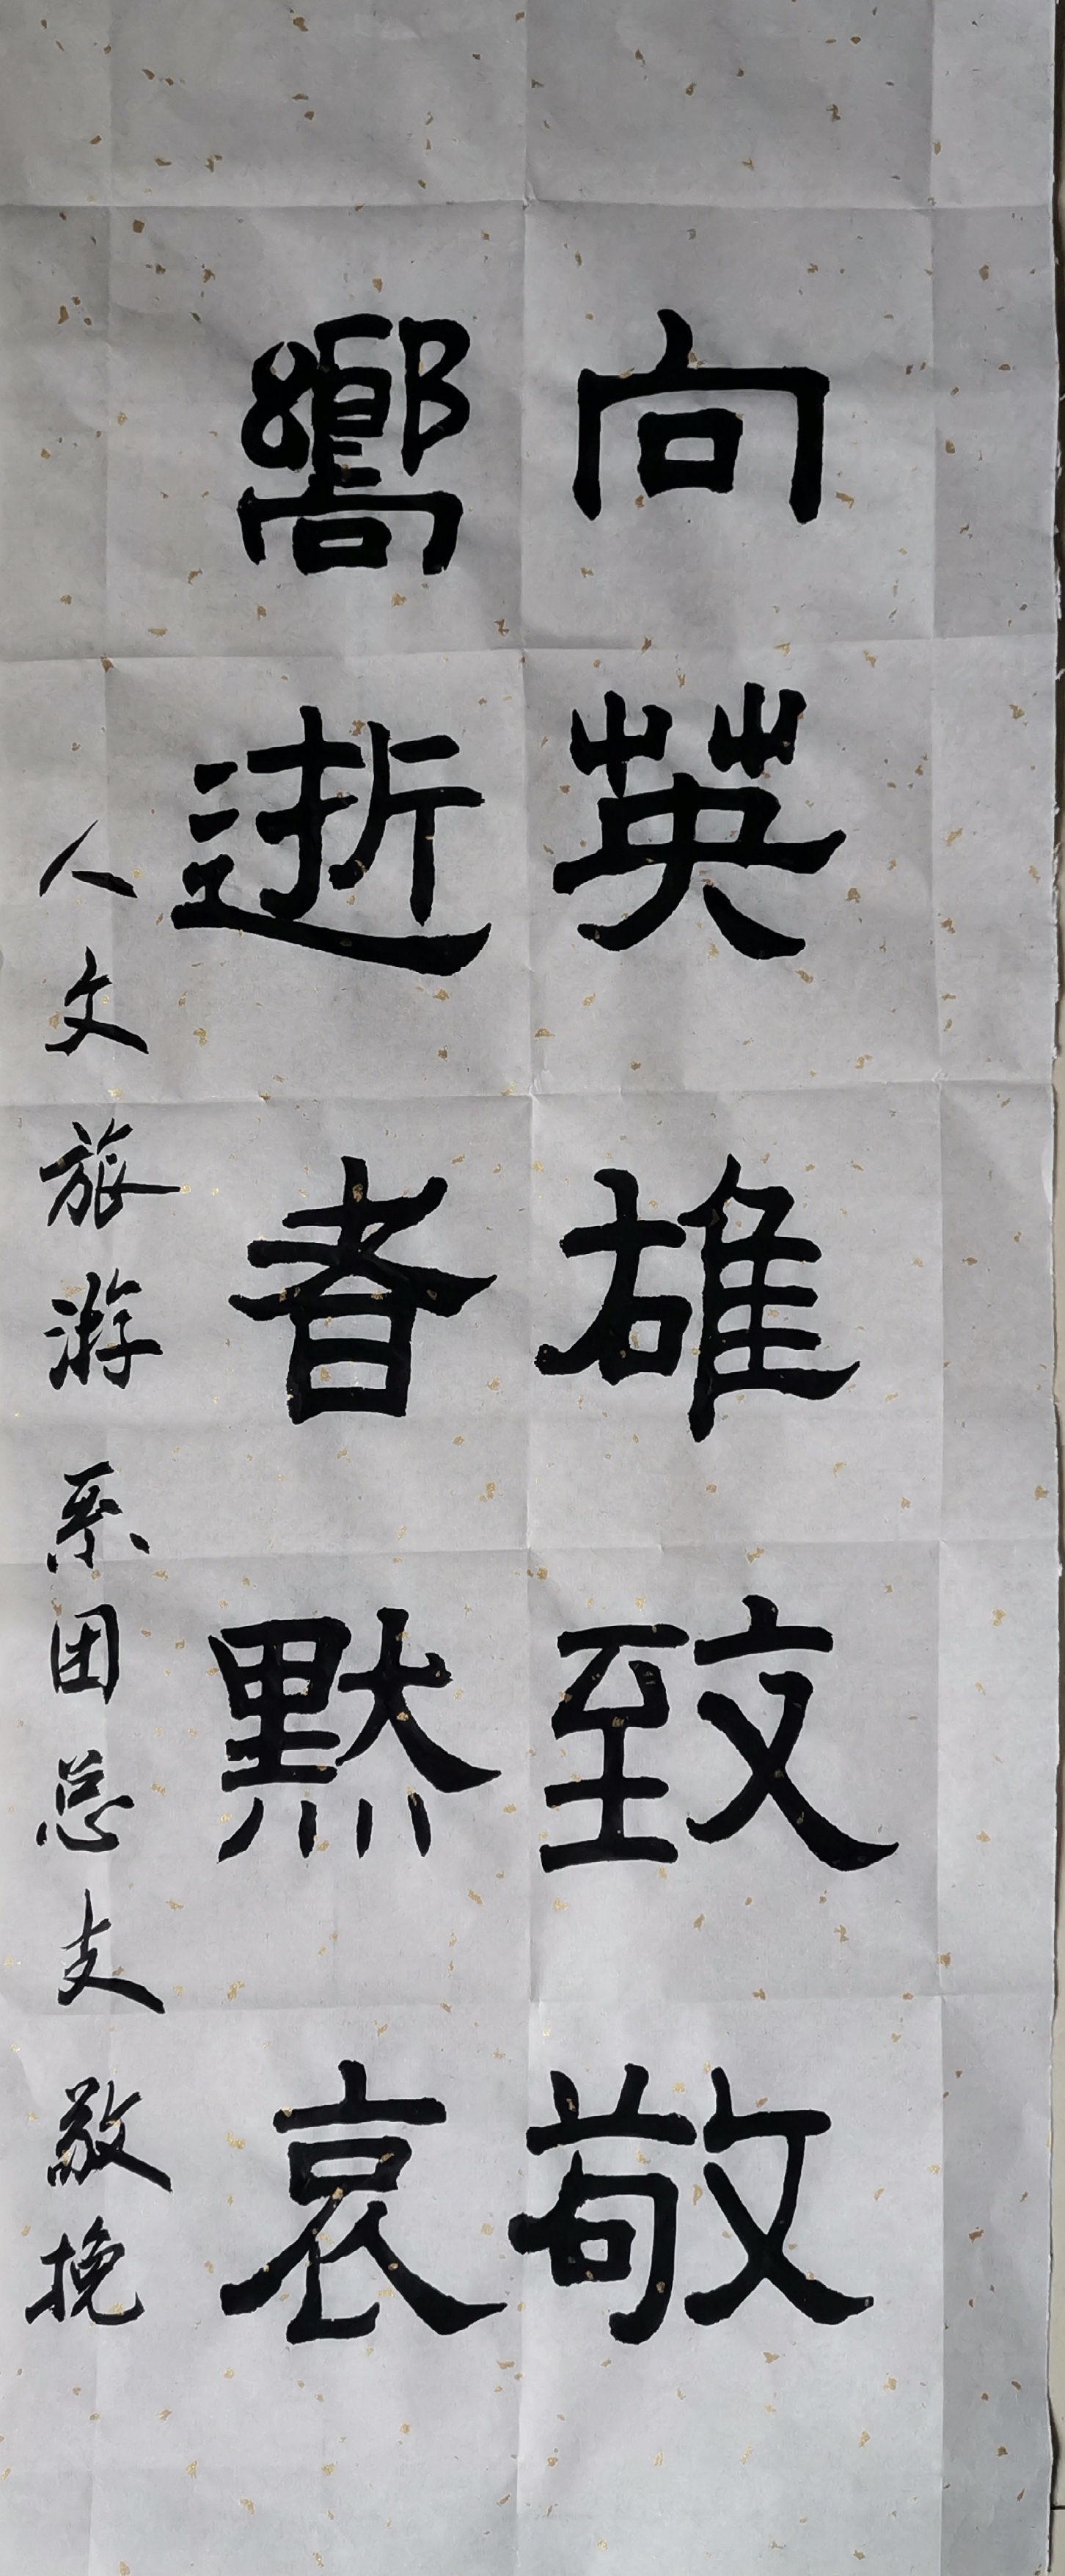 向英雄致敬
嚮逝者默哀
人文旅游系团总支 敬挽